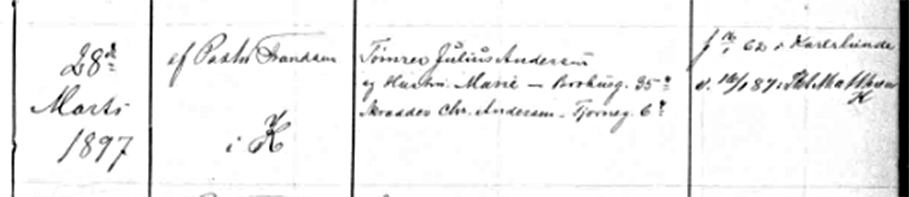 28de
Marts
1897
af Pastor Frandsen
i K
Tømrer Julius Andersen
og Hustru Marie — Broburg. 35
Skrædder Chr. Andersen. Tjorneg. 6
f 62 i Karlslunde
v. 87 i St Matthæus
K